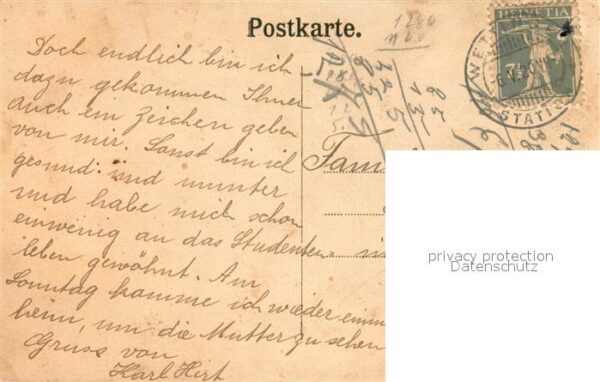 Postkarte.
1286
HELVETIA
7½
WET
STATI
Doch endlich bin ich
dazu gekommen Ihnen
auch ein Zeichen geben
von mir. Sonst bin ich
gesund und munter
und habe mich schon
einwenig an das Studenten-
leben gewöhnt. Am
Sonntag komme ich wieder einm
heim, um die Mutter zu sehen
Gruss von
Karl Hirt
Fam
privacy protection
Datenschutz